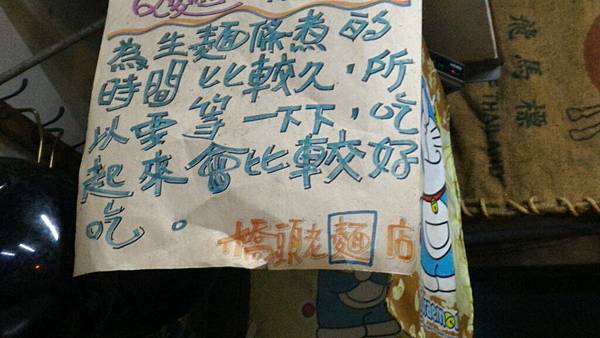 為生麵條煮的
時間比較久,所
以要等一下下,吃
起來會比較好
吃。
橋頭老麵店
飛馬標
THAILAND